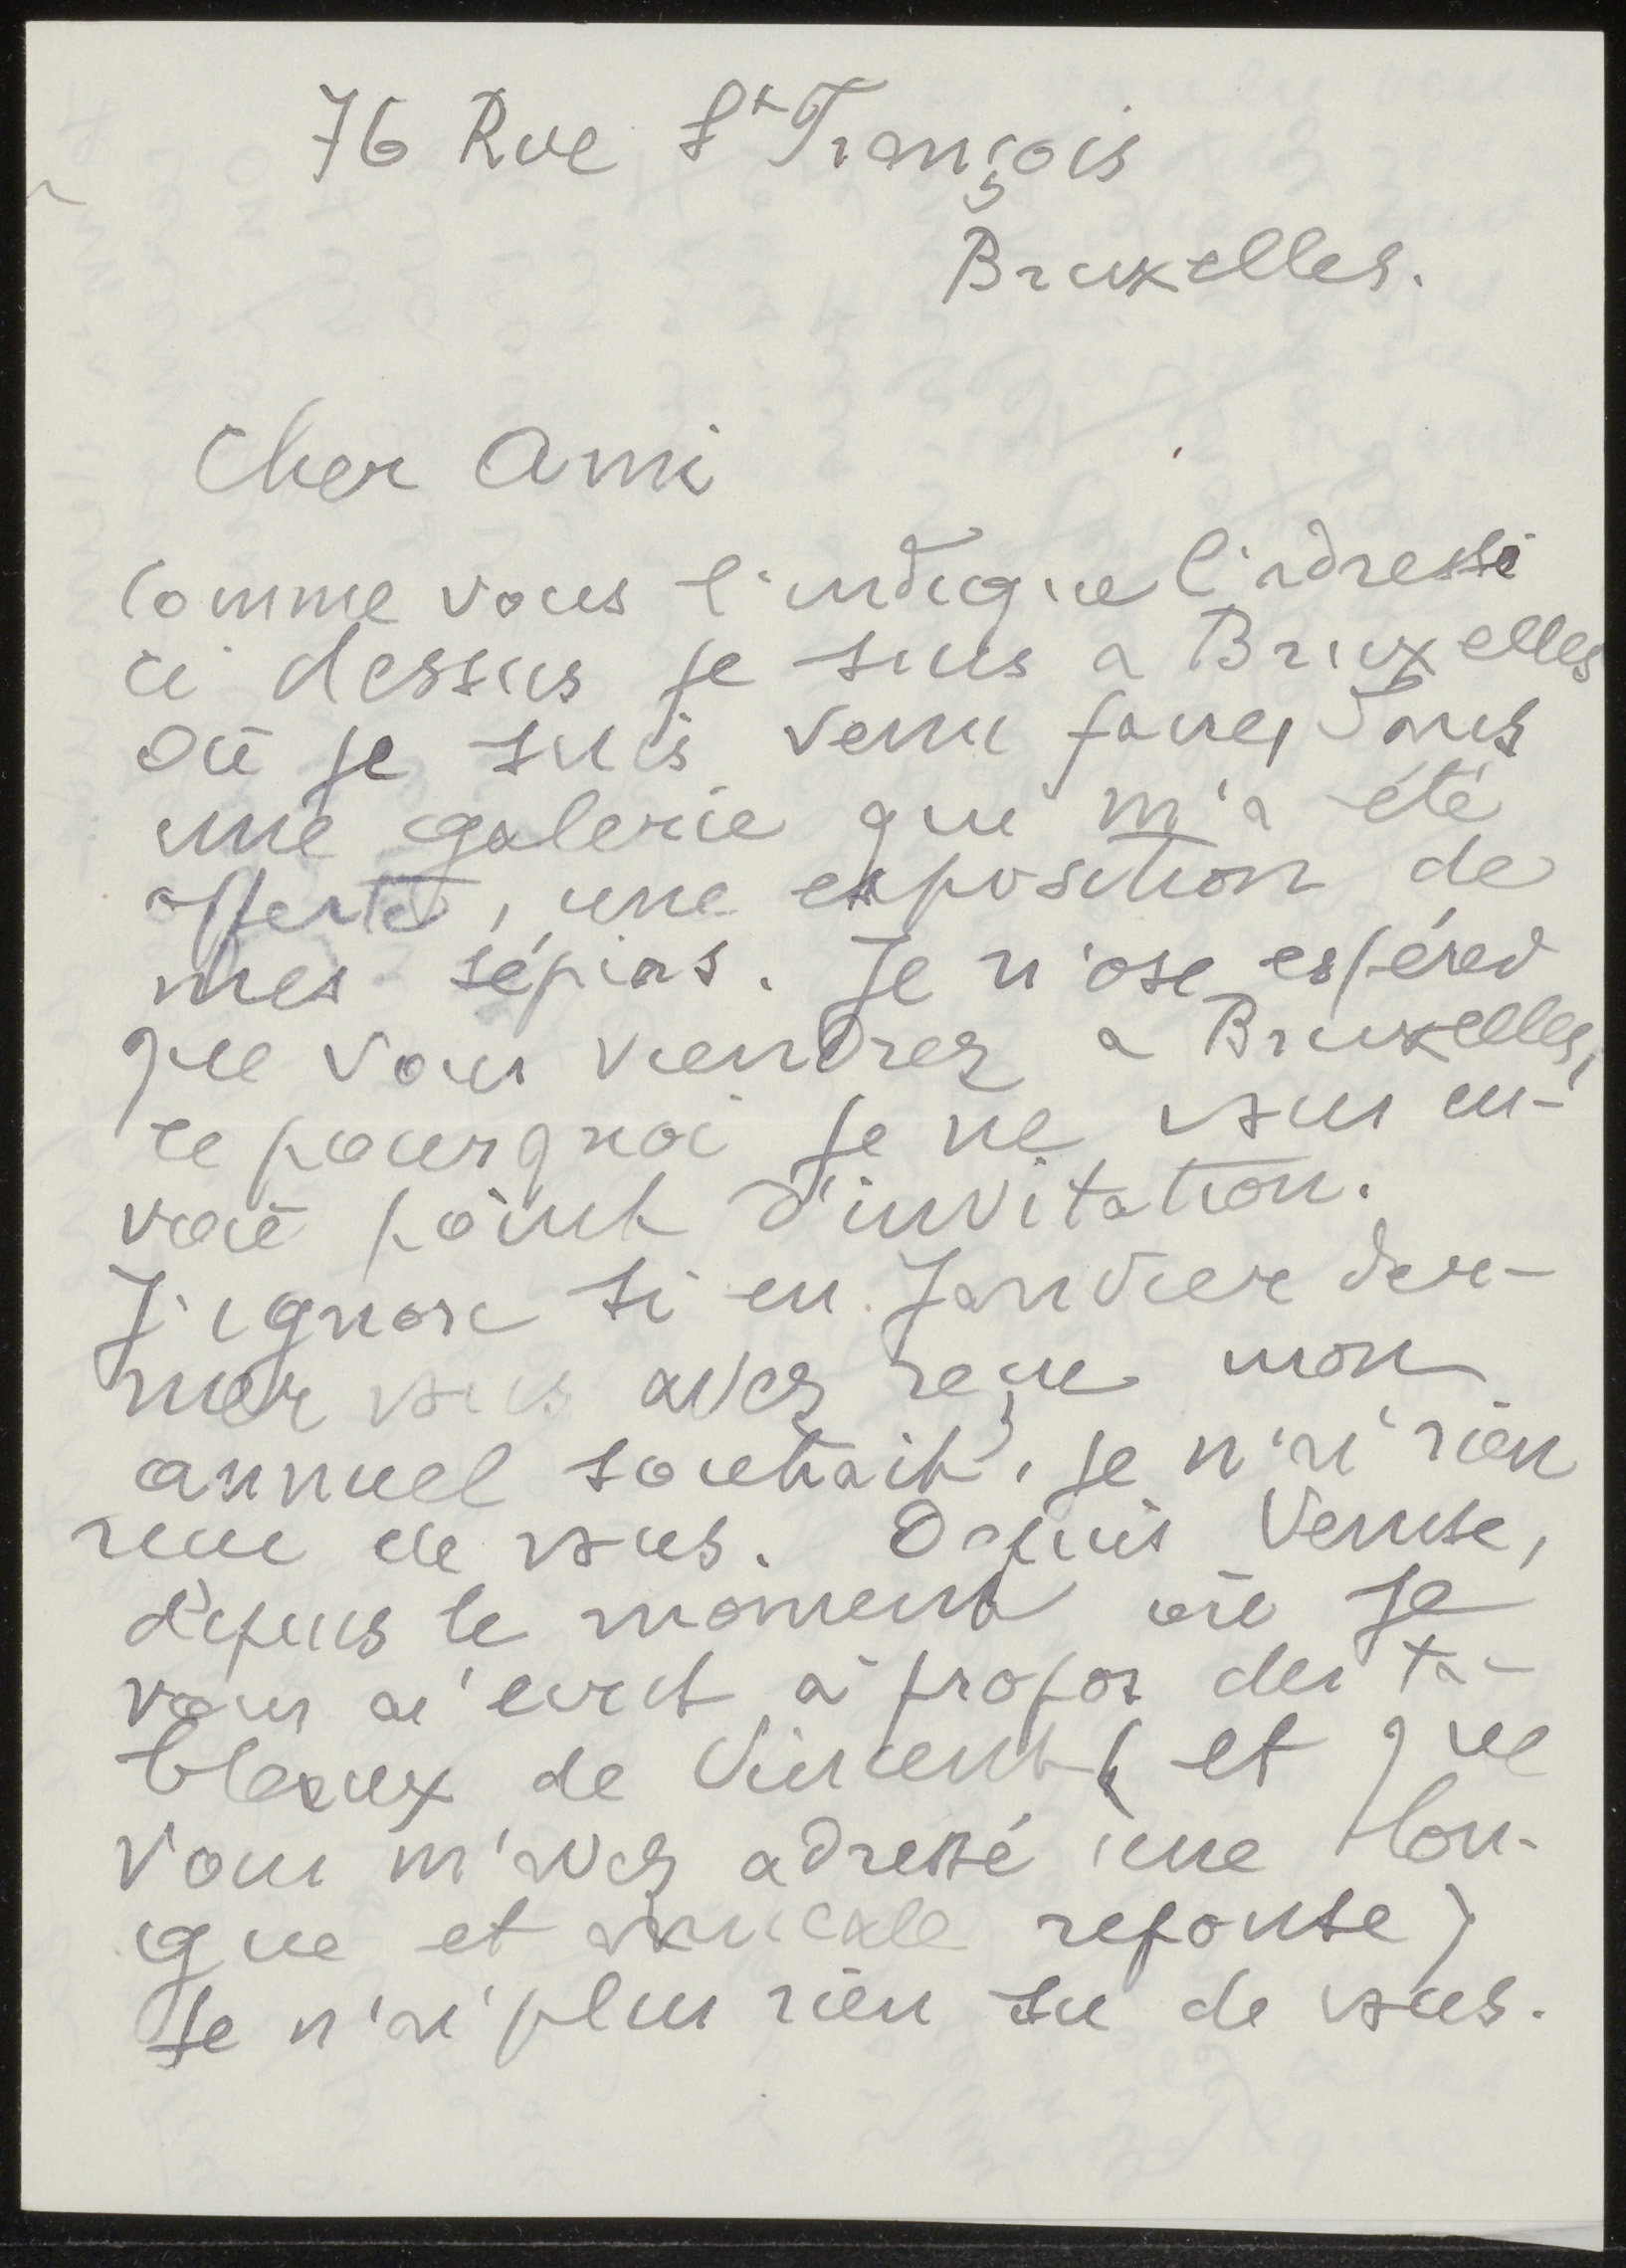 76 Rue St François
Bruxelles.
Cher Ami
Comme vous l'indique l'adresse
ci dessus je suis a Bruxelles
où je suis venu faire, dans
une galerie qui m'a été
offerte, une exposition de
mes sépias. Je n'ose espérer
que vous viendrez a Bruxelles,
ce pourquoi je ne vous en-
voie point d'invitation.
J'ignore si en Janvier der-
nier vous avez reçu mon
annuel souhait, je n'ai rien
reçu de vous. Depuis Venise,
depuis le moment où je
vous ai écrit à propos des ta-
bleaux de Vincent (et que
vous m'avez adressé une lon-
gue et amicale reponse)
je n'ai plus rien su de vous.